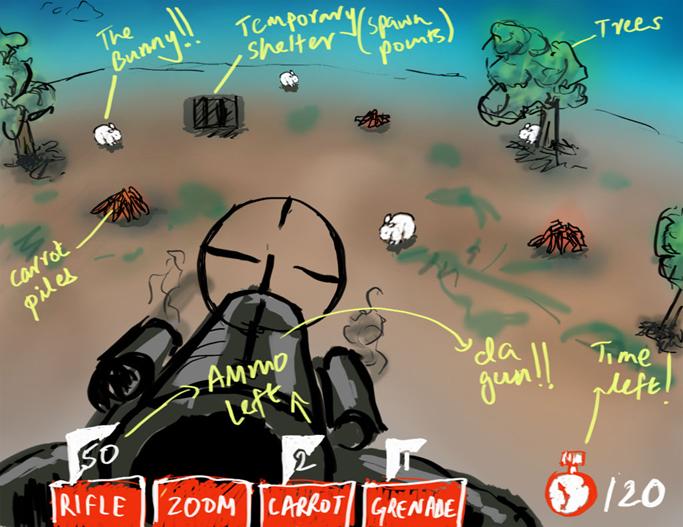 The
Bunny!!
Temporary
Shelter
(spawn
points)
Trees
carrot
piles
da
gun!!
Time
left!
Ammo
left
50
2
1
RIFLE
ZOOM
CARROT
GRENADE
120